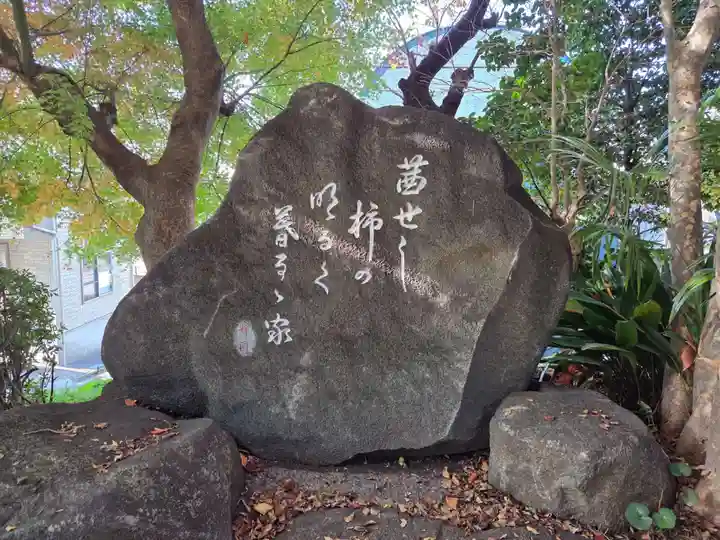 茜せし
柿の
明るく
暮るゝ家